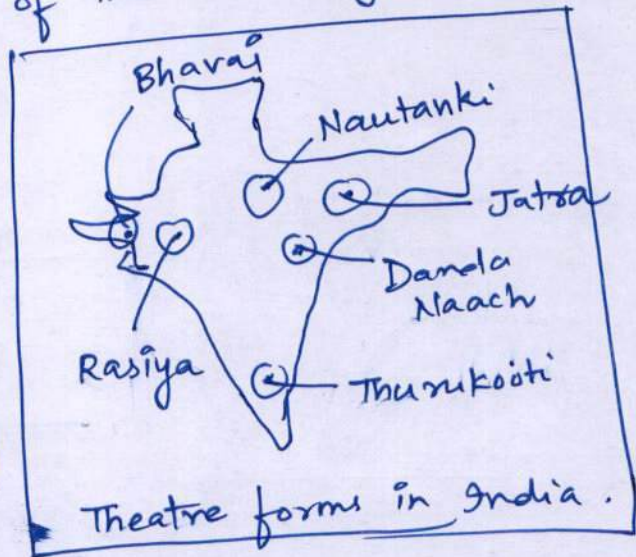 of
Bhavai
Nautanki
Jatra
Danda
Naach
Rasiya
Thurukooti
Theatre forms in India.